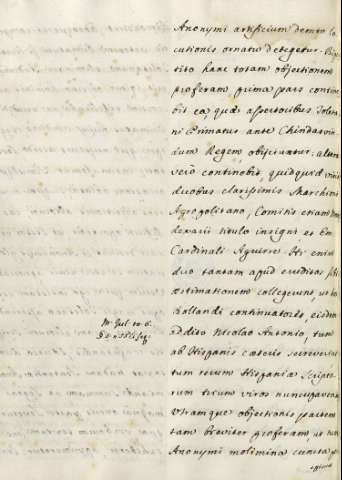 Anonymi artificium demto lo
cutionis ornatu detegetur.
tito hanc totam objectionem
proferam prima pars contine
bit ea, quæ assertoribus Toleta
ni Primatus ante Chindasvin
dum Regem objiciuntur: altera
vero continebit, quidquid
duobus clarissimis Marchioni
Agropolitano, Comitis etiam Mon
dexaris titulo insigni et Em.
Cardinali Aguirre. Hi enim
duo tantam apud eruditos sibi
æstimationem collegerunt, ut
Bollandi continuatores, eidem
addito Nicolao Antonio, tum
ab Hispanis cæteris
tum rerum Hispaniæ Scripto
rum viros nuncupaverint
Utramque objectionis partem
tam breviter proferam ut
Anonymi molimina cuncta
M. Jul. to. 6.